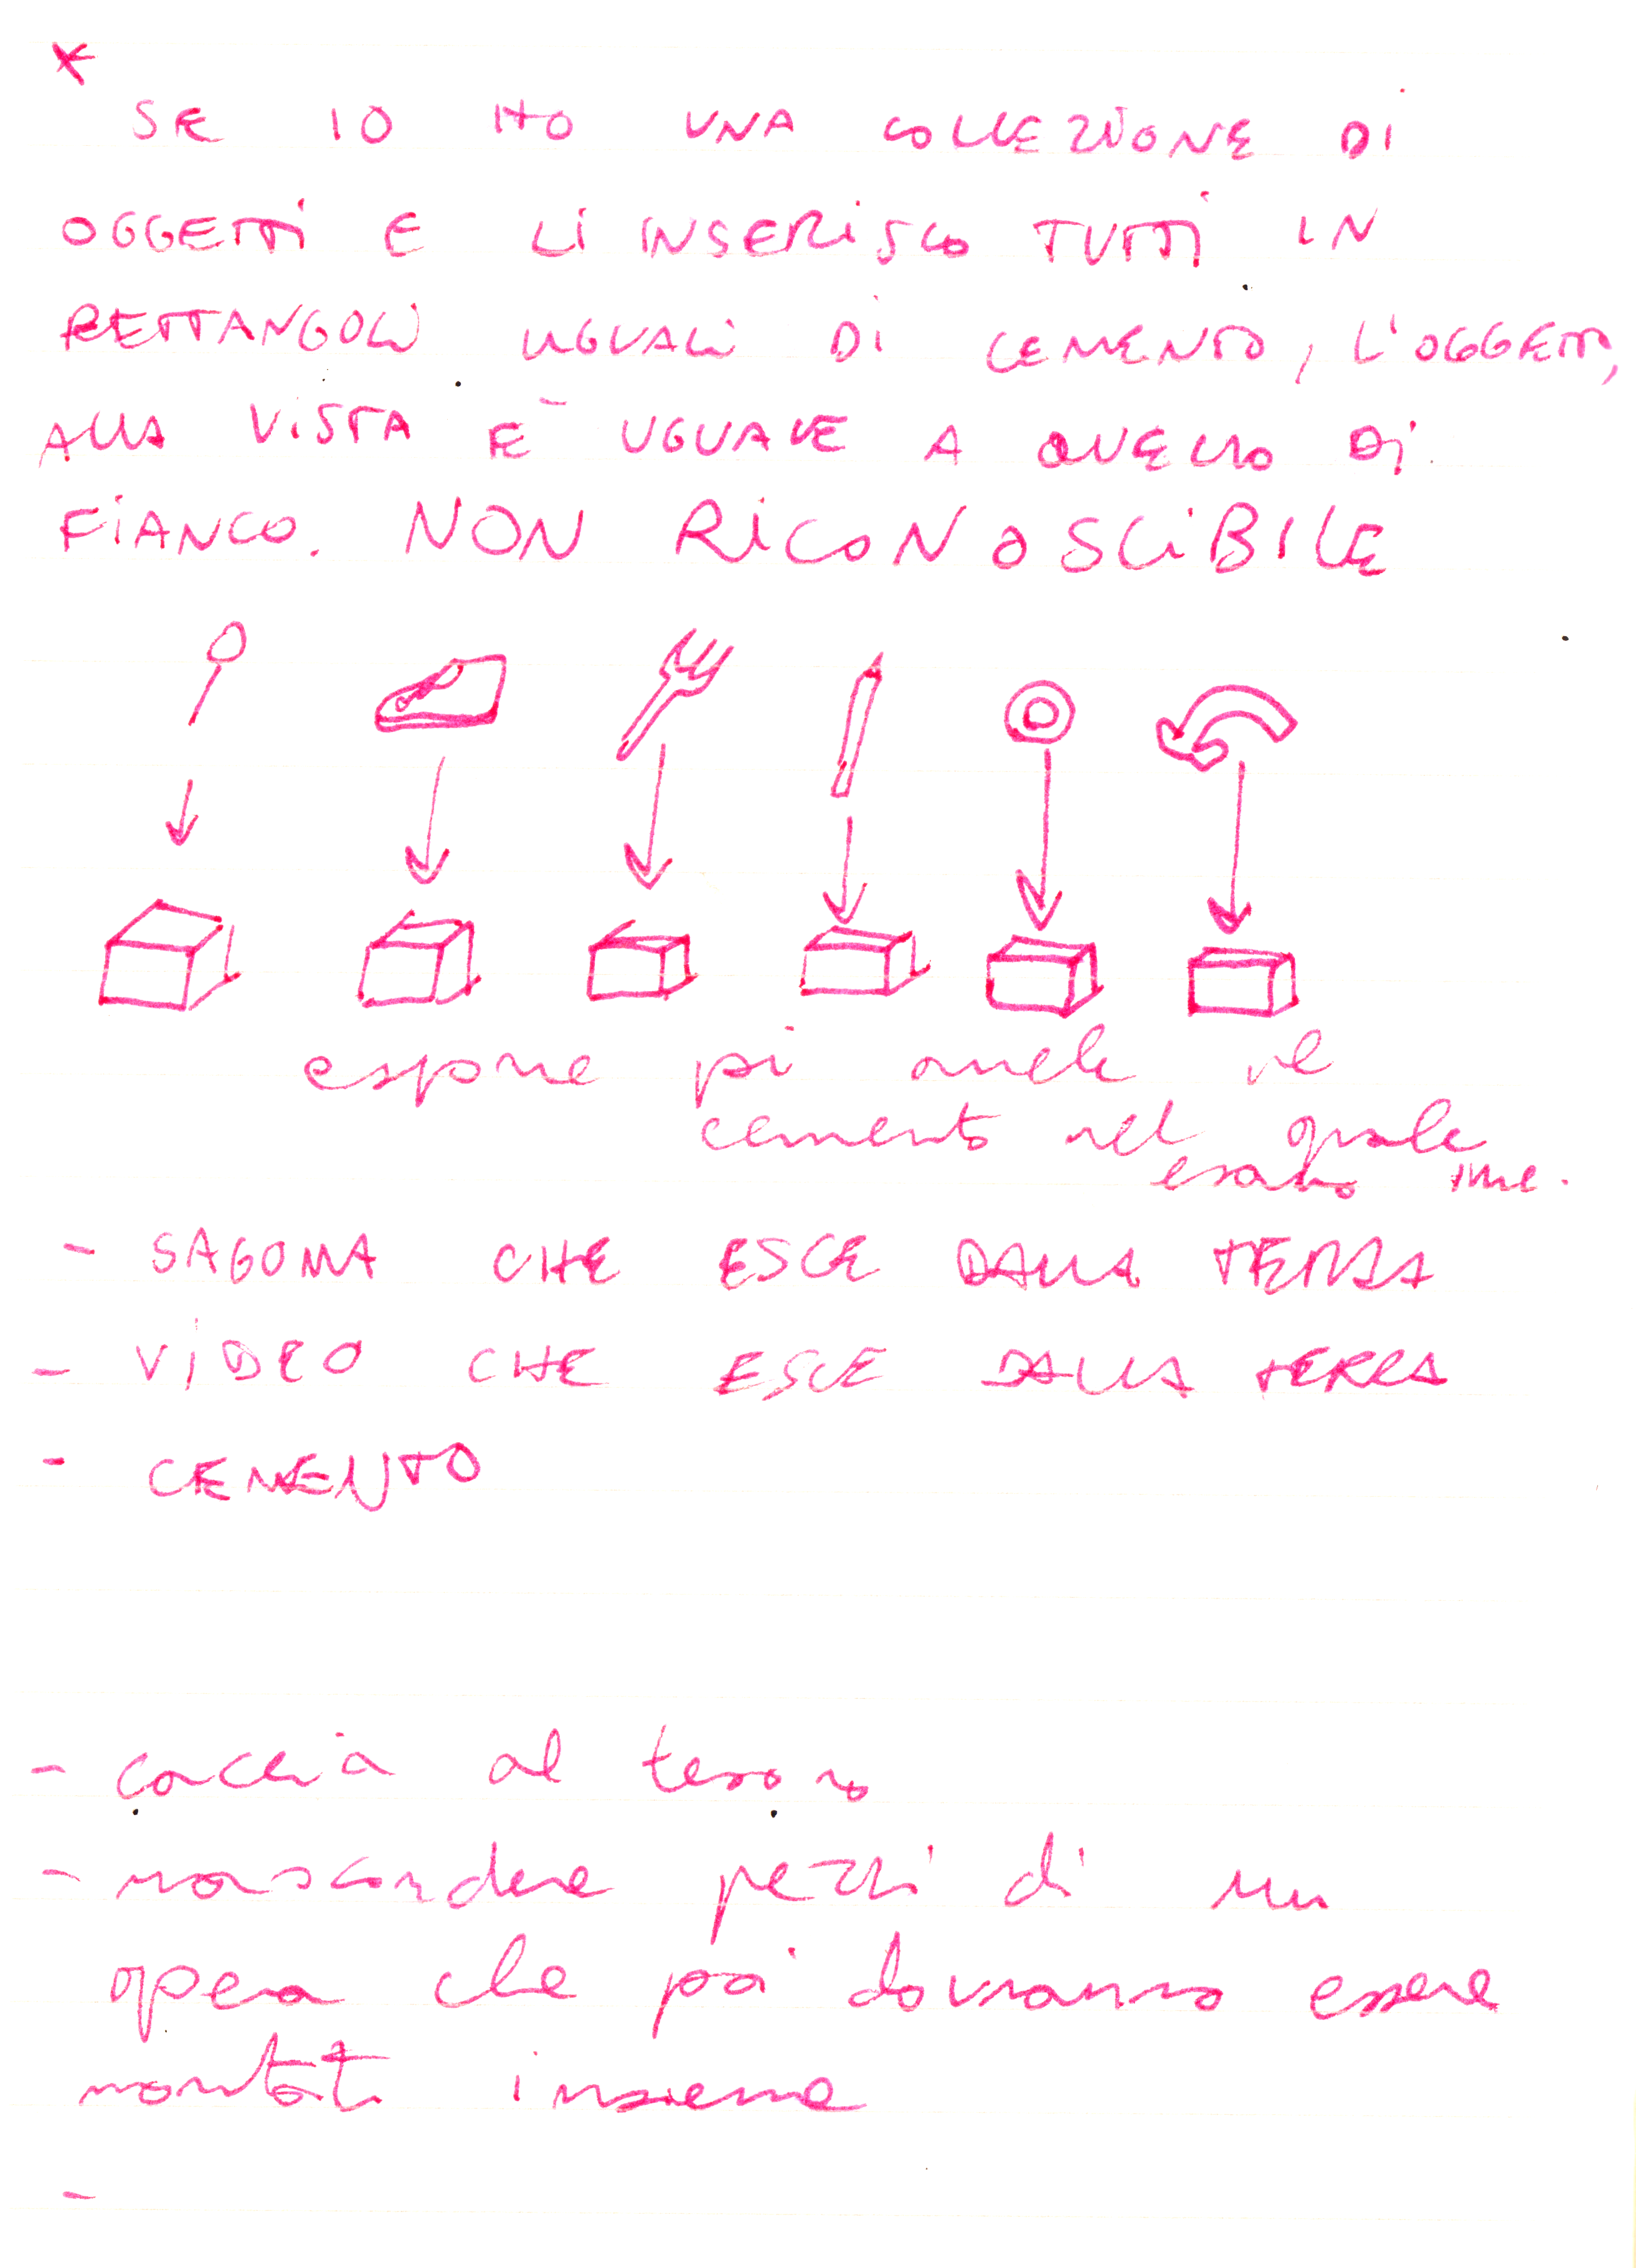 SE IO HO UNA COLLEZIONE DI
OGGETTI E LI INSERISCO TUTTI IN
RETTANGOLI UGUALI DI CEMENTO, L'OGGETTO,
ALLA VISTA È UGUALE A QUELLO DI
FIANCO. NON RICONOSCIBILE
esporre poi anche il
cemento nel quale
- SAGOMA CHE ESCE DALLA TERRA
- VIDEO CHE ESCE DALLA TERRA
- CEMENTO
- caccia al tesoro
- nascondere pezzi di un
opera che poi dovranno essere
montati insieme
-